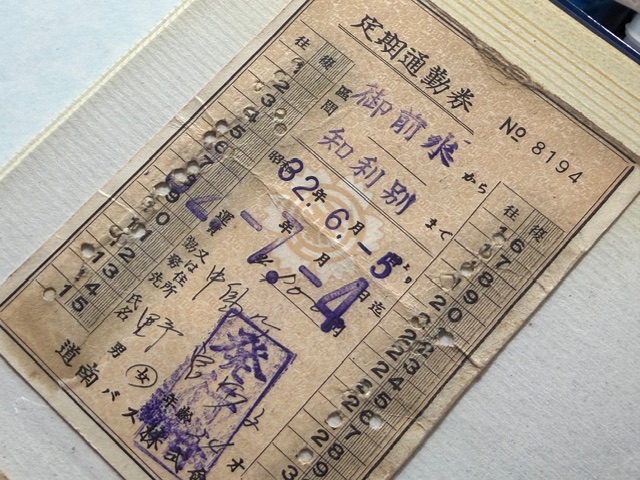 定期通勤券
№ 8194
区間
御前水から
知利別まで
昭和32年6月-5日より
32-7-4
年 月 日迄
運賃 円
住所又は勤務先
氏名 野
男 女 年齢 才
道南バス株式会
往 復
1
2
3
4
5
6
7
9
10
11
12
13
14
15
往 復
16
17
18
19
20
22
23
24
25
26
27
28
29
3